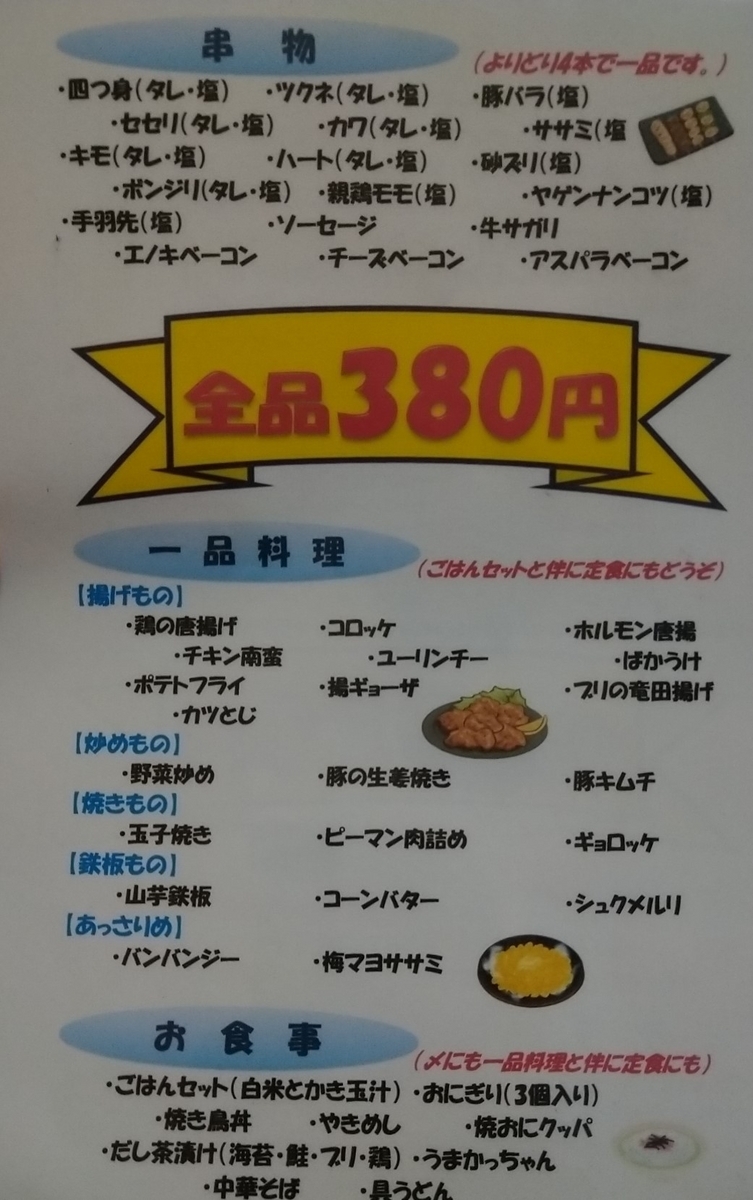 串物
(よりどり4本で一品です。)
・四つ身(タレ・塩) ・ツクネ(タレ・塩) ・豚バラ(塩)
・セセリ(タレ・塩) ・カワ(タレ・塩) ・ササミ(塩
・キモ(タレ・塩) ・ハート(タレ・塩) ・砂ズリ(塩)
・ボンジリ(タレ・塩) ・親鶏モモ(塩) ・ヤゲンナンコツ(塩)
・手羽先(塩) ・ソーセージ ・牛サガリ
・エノキベーコン ・チーズベーコン ・アスパラベーコン
全品380円
一品料理
(ごはんセットと伴に定食にもどうぞ)
【揚げもの】
・鶏の唐揚げ ・コロッケ ・ホルモン唐揚
・チキン南蛮 ・ユーリンチー ・ばかうけ
・ポテトフライ ・揚ギョーザ ・ブリの竜田揚げ
・カツとじ
【炒めもの】
・野菜炒め ・豚の生姜焼き ・豚キムチ
【焼きもの】
・玉子焼き ・ピーマン肉詰め ・ギョロッケ
【鉄板もの】
・山芋鉄板 ・コーンバター ・シュクメルリ
【あっさりめ】
・バンバンジー ・梅マヨササミ
お食事
(〆にも一品料理と伴に定食にも)
・ごはんセット(白米とかき玉汁) ・おにぎり(3個入り)
・焼き鳥丼 ・やきめし ・焼おにクッパ
・だし茶漬け(海苔・鮭・ブリ・鶏) ・うまかっちゃん
・中華そば ・具うどん